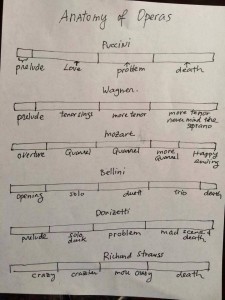 Anatomy of Operas
Puccini
prelude Love problem death
Wagner
prelude tenor sings more tenor more tenor
never mind the
soprano
Mozart
overture Quarrel Quarrel more Happy
Quarrel ending
Bellini
opening solo duett trio death
Donizetti
prelude solo problem mad scene &
death
Richard Strauss
crazy crazier more crazy death